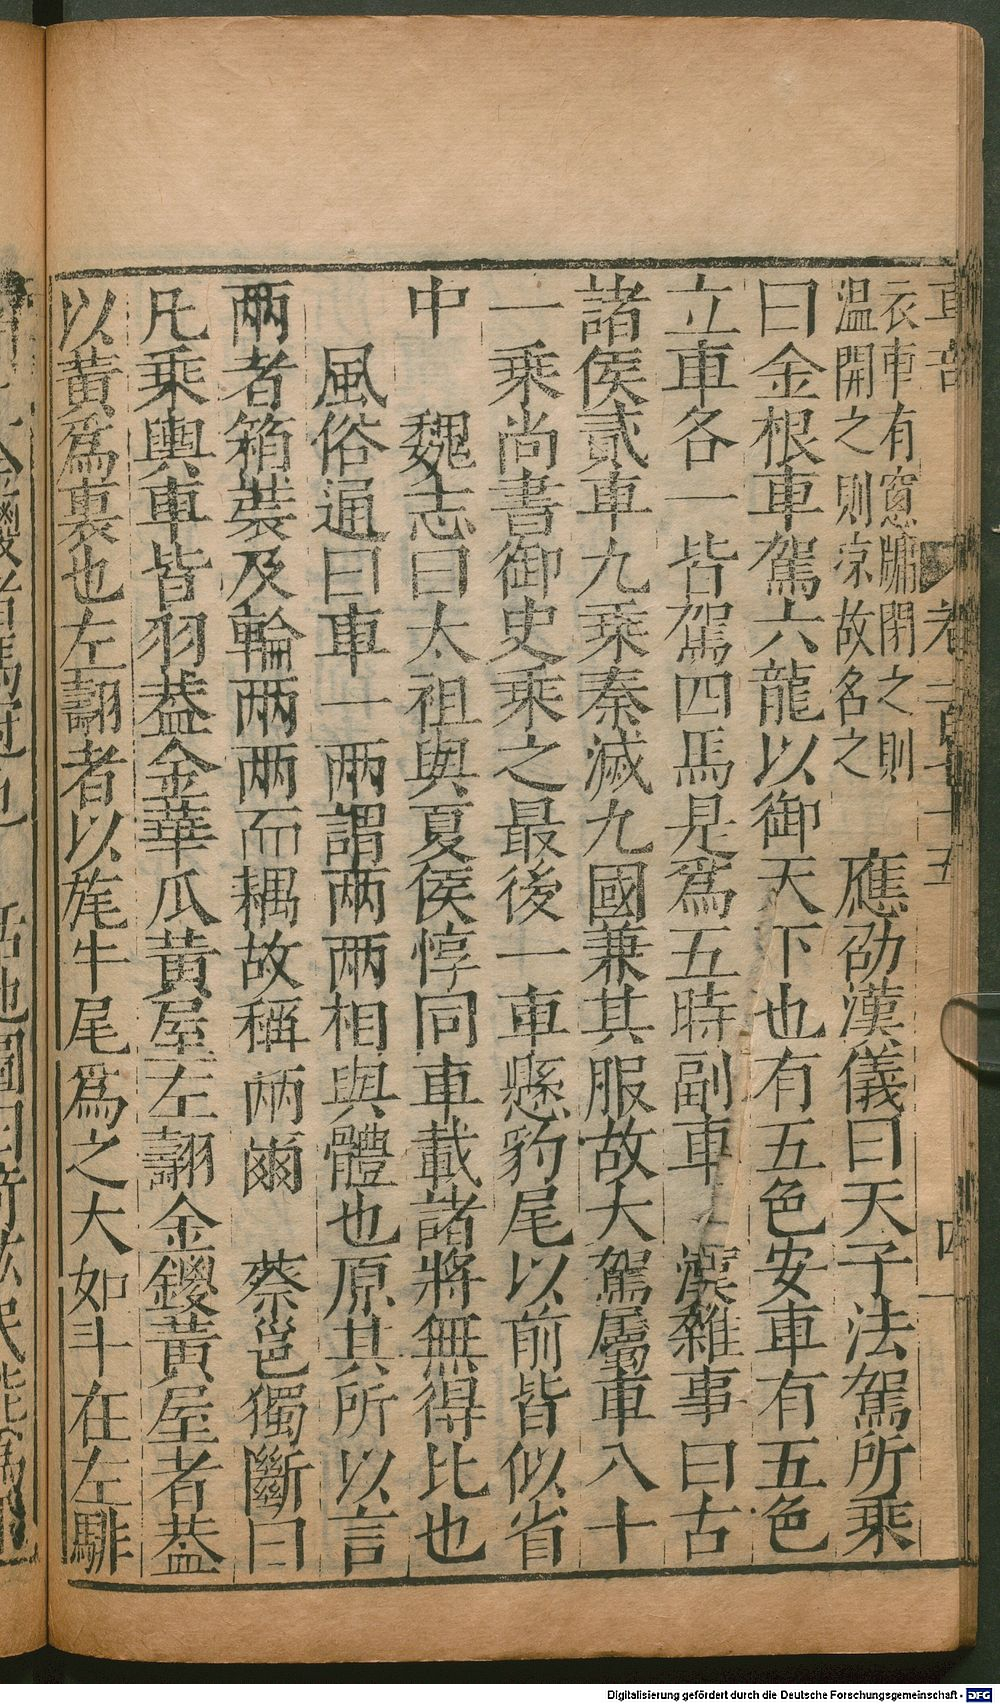 車部 卷一百七十五 四
衣車有窻牖閉之則
温開之則凉故名之 應劭漢儀曰天子法駕所乘
曰金根車駕六龍以御天下也有五色安車有五色
立車各一皆駕四馬是爲五時副車 漢雜事曰古
諸侯貳車九乘秦滅九國兼其服故大駕屬車八十
一乘尚書御史乘之最後一車懸豹尾以前皆似省
中 魏志曰太祖與夏侯惇同車載諸將無得比也
風俗通曰車一兩謂兩兩相與體也原其所以言
兩者箱裝及輪兩兩而耦故稱兩爾 蔡邕獨斷曰
凡乘輿車皆羽葢金華瓜黄屋左翿金鑁黄屋者葢
以黄爲裏也左翿者以旄牛尾爲之大如斗在左騑
Digitalisierung gefördert durch die Deutsche Forschungsgemeinschaft - DFG